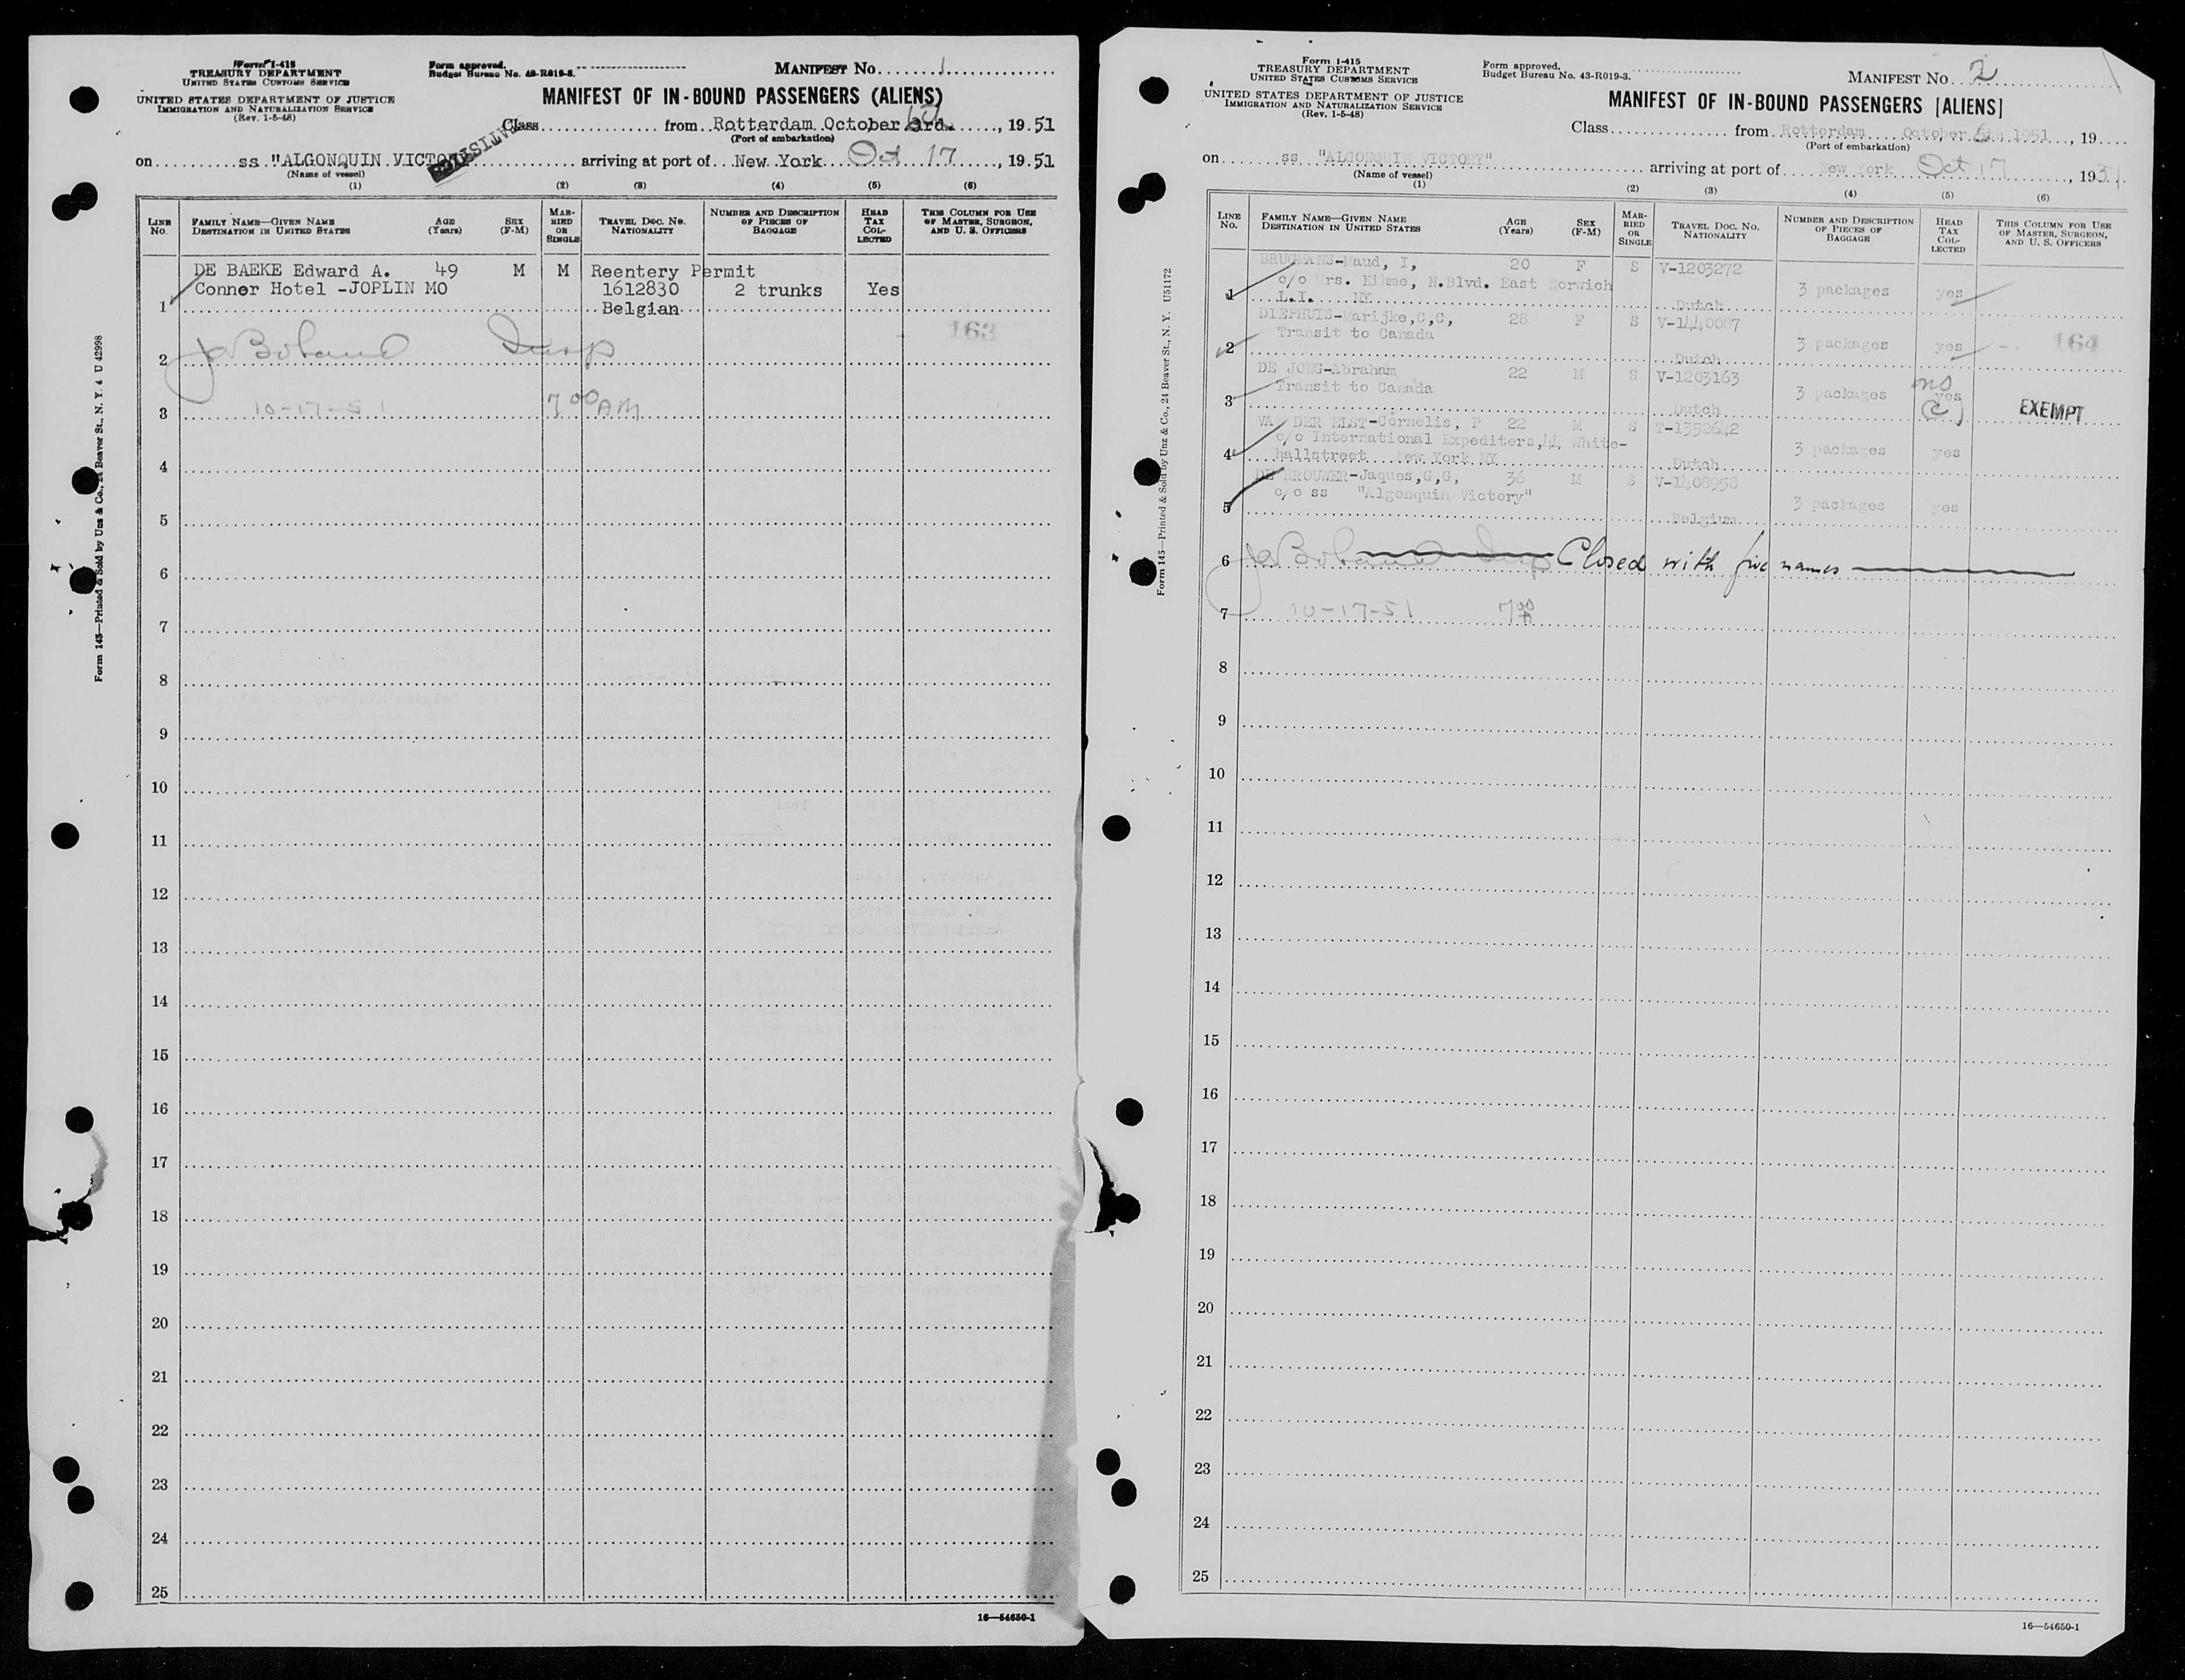 Form I-415
TREASURY DEPARTMENT
UNITED STATES CUSTOMS SERVICE
UNITED STATES DEPARTMENT OF JUSTICE
IMMIGRATION AND NATURALIZATION SERVICE
(Rev. 1-5-48)
Form approved.
Budget Bureau No. 43-R019-3.
MANIFEST No. 1
MANIFEST OF IN-BOUND PASSENGERS (ALIENS)
Class from Rotterdam October 3rd, 1951
(Port of embarkation)
on ss "ALGONQUIN VICTORY" arriving at port of New York Oct 17, 1951
(Name of vessel)
(1) (2) (3) (4) (5) (6)
LINE No. FAMILY NAME—GIVEN NAME DESTINATION IN UNITED STATES AGE (Years) SEX (F-M) MARRIED OR SINGLE TRAVEL DOC. NO. NATIONALITY NUMBER AND DESCRIPTION OF PIECES OF BAGGAGE HEAD TAX COLLECTED THIS COLUMN FOR USE OF MASTER, SURGEON, AND U. S. OFFICERS
DE BAEKE Edward A. 49 M M Reentery Permit
Conner Hotel -JOPLIN MO 1612830 2 trunks Yes
1 Belgian
163
2 Insp
3 10-17-51 7 00 AM
4
5
6
7
8
9
10
11
12
13
14
15
16
17
18
19
20
21
22
23
24
25
16—54650-1
Form 145—Printed & Sold by Unz & Co., 24 Beaver St., N. Y. 4 U 42998
Form I-415
TREASURY DEPARTMENT
UNITED STATES CUSTOMS SERVICE
UNITED STATES DEPARTMENT OF JUSTICE
IMMIGRATION AND NATURALIZATION SERVICE
(Rev. 1-5-48)
Form approved.
Budget Bureau No. 43-R019-3.
MANIFEST No. 2
MANIFEST OF IN-BOUND PASSENGERS [ALIENS]
Class from Rotterdam October 6th 1951, 19
(Port of embarkation)
on ss "ALGONQUIN VICTORY" arriving at port of New York Oct 17, 1951
(Name of vessel)
(1) (2) (3) (4) (5) (6)
LINE No. FAMILY NAME—GIVEN NAME DESTINATION IN UNITED STATES AGE (Years) SEX (F-M) MARRIED OR SINGLE TRAVEL DOC. NO. NATIONALITY NUMBER AND DESCRIPTION OF PIECES OF BAGGAGE HEAD TAX COLLECTED THIS COLUMN FOR USE OF MASTER, SURGEON, AND U. S. OFFICERS
BRUGMANS-Maud, I, 20 F S V-1203272
c/o Mrs. N.Blvd. East Norwich 3 packages yes
1 L.I. NY Dutch
DIEPHUIS-Marijke,C,C, 28 F S V-1440087
Transit to Canada 3 packages yes 164
2 Dutch
DE JONG-Abraham 22 M S V-1203163
Transit to Canada 3 packages yes no (C) EXEMPT
3 Dutch
VAN DER ELST-Cornelis, P 22 M S T-1352642
c/o International Expediters,44 White-
4 hallstreet New York NY Dutch 3 packages yes
DE BROUWER-Jaques,G,G, 36 M S V-1408958
c/o ss "Algonquin Victory" 3 packages yes
5 Belgium
6 Insp Closed with five names
7 10-17-51 7 00
8
9
10
11
12
13
14
15
16
17
18
19
20
21
22
23
24
25
16—54650-1
Form 145—Printed & Sold by Unz & Co., 24 Beaver St., N. Y. U51172